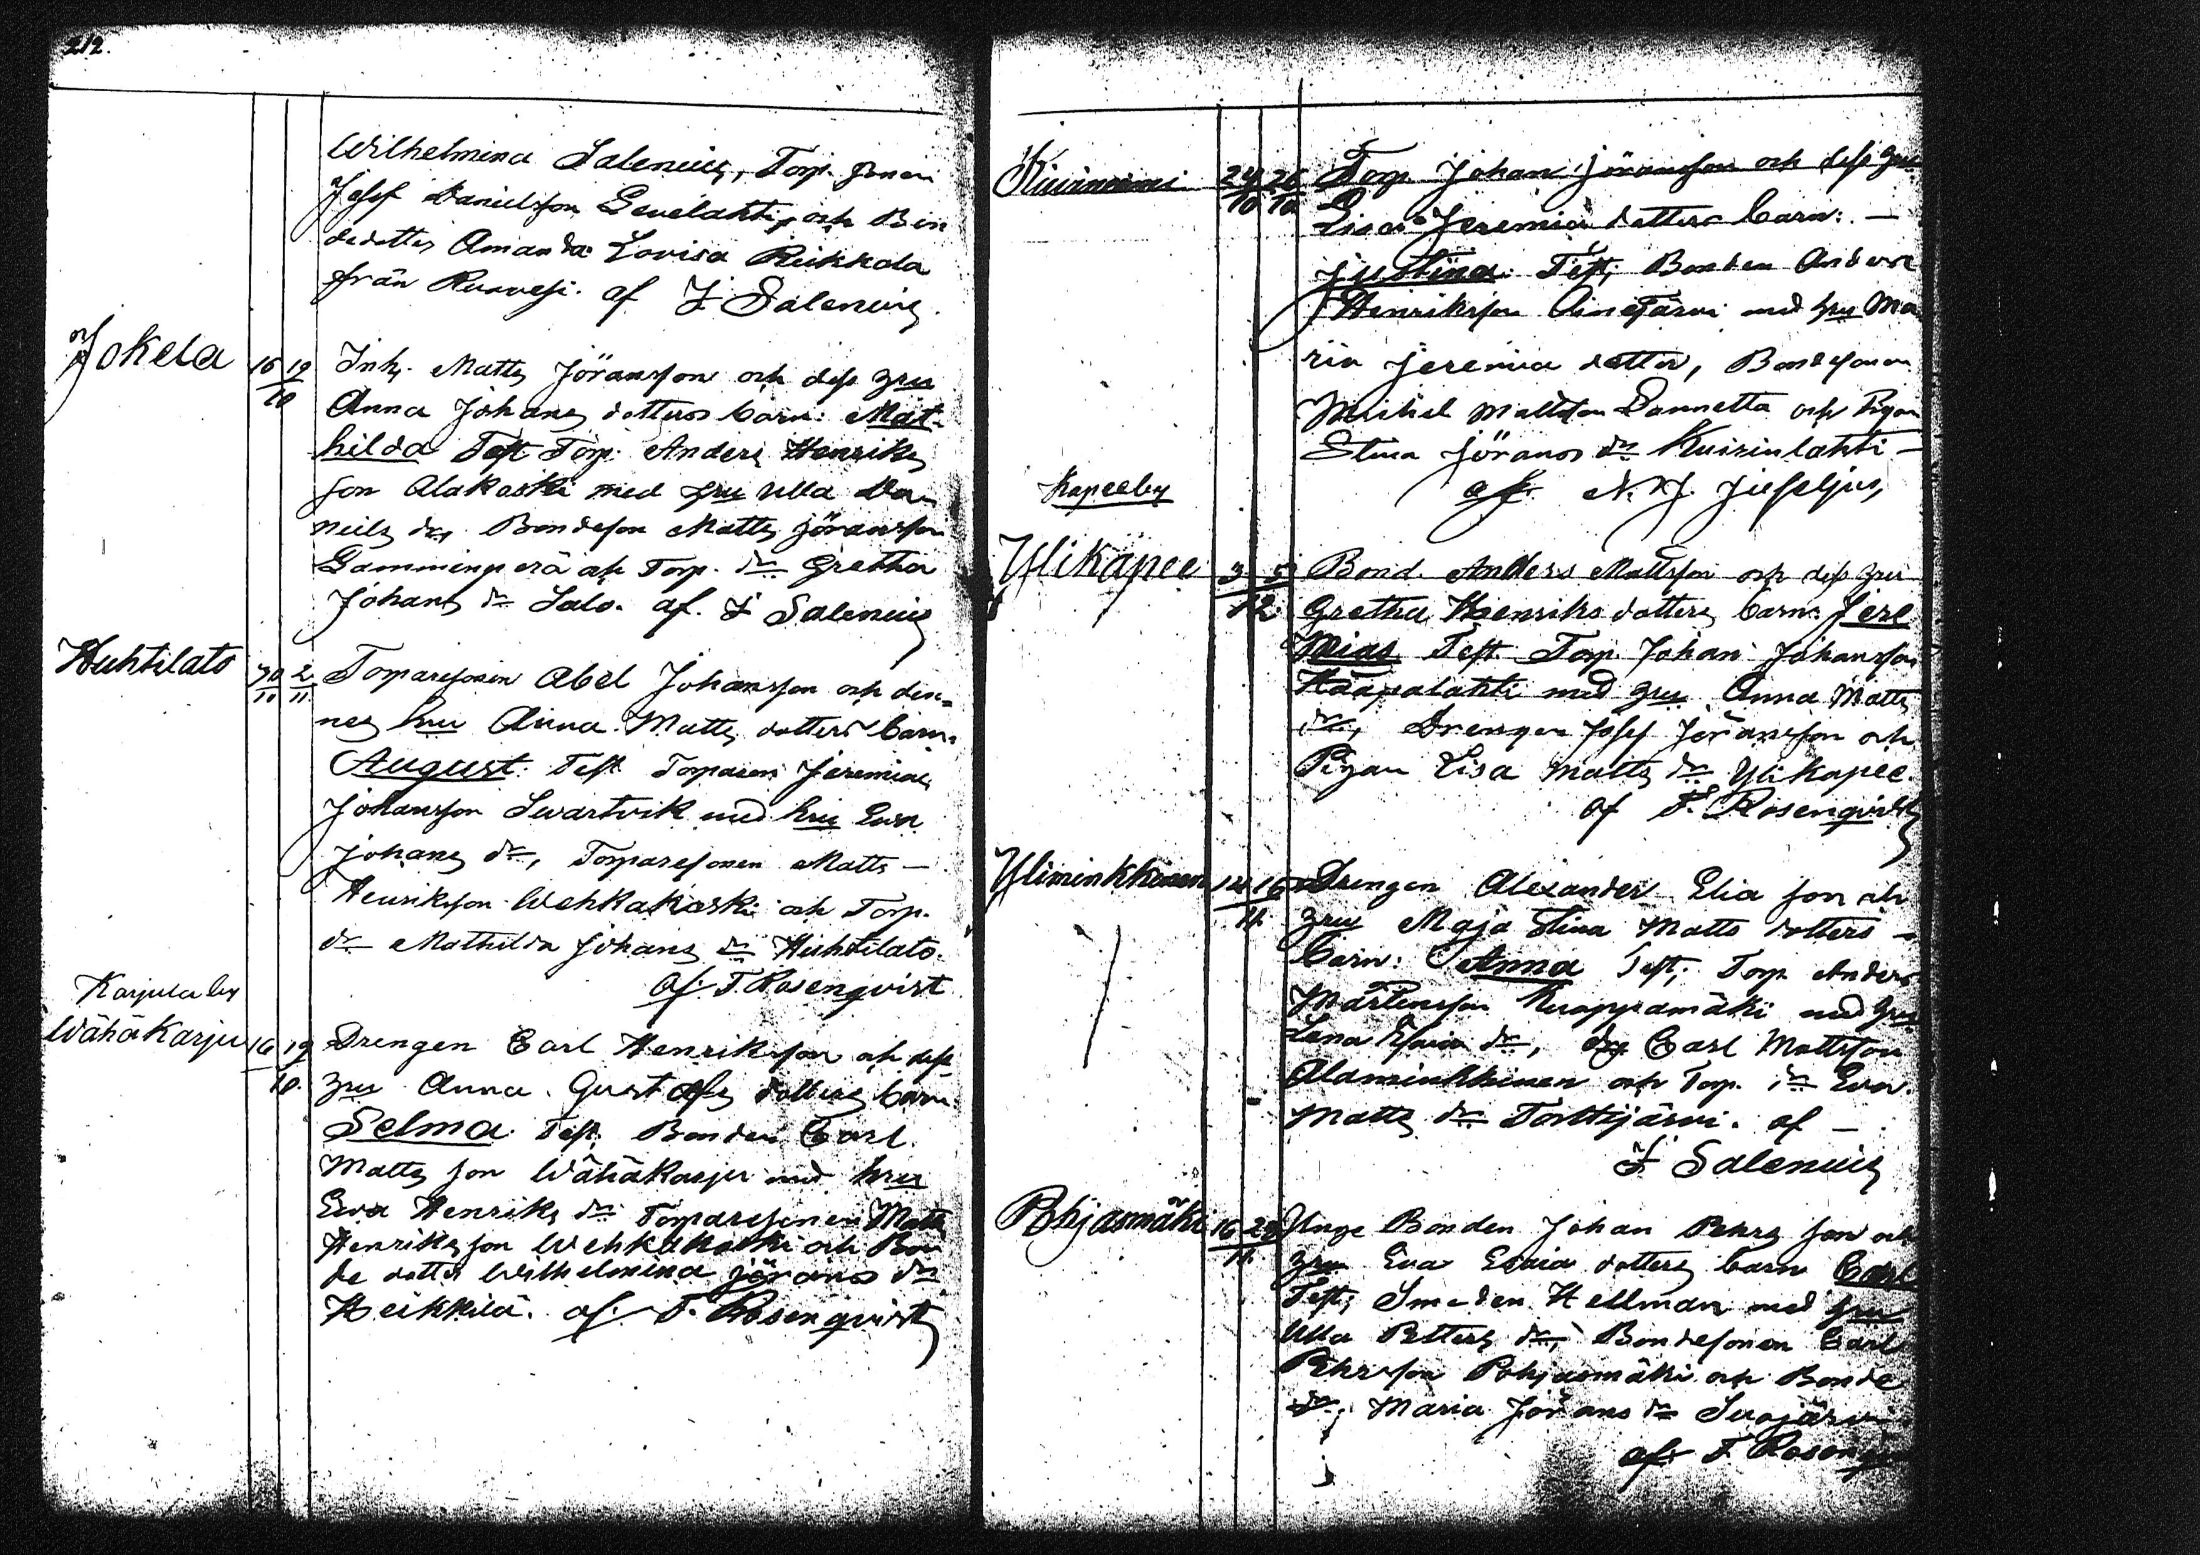 212.
Wilhelmina Salenius, Torp. sonen
Josef Danielsson Levelahti, och Bon
dedotter Amanda Lovisa Reikkola
från Ruovesi. af F Salenius
Jokela 16 19 Inh. Matts Jöransson och dess hru
10 Anna Johans dotters barn: Mat-
hilda Test Torp. Anders Henriks
son Alakoski med hru Ulla Da-
niels dr, Bondeson Matts Jöransson
Lamminperä och Torp. dr Gretha
Johans dr Salo. af. F Salenius
Huhtilato 2 Torparesonen Abel Johansson och den-
11 11 nes hru Anna Matts dotters barn:
August: Test Torparen Jeremias
Johansson Swartvik med hru Ewa
Johans dr, Torparesonen Matts —
Henriksson Wehkakoski och Torp.
dr Mathilda Johans dr Huhtilato.
af. F. Rosenqvist
Karjula by
Wähäkarju 16 19 Drengen Carl Henriksson och dess
10. hru Anna Gustafs dotters barn
Selma. Test. Bonden Carl
Matts son Wähäkarju med hru
Ewa Henriks dr Torparesonen Matts
Henriks son Wehkakoski och Bon
de dotter Wilhelmina Jörans dr
Heikkilä. af. F. Rosenqvist
24 26 Torp. Johan Jöransson och dess hru
10 10 Lisa Jeremia dotters barn: —
Justina. Test; Bonden Anders
Henriksson Ainesjärvi med hru Ma
ria Jeremia dotter, Bondesonen
Michel Mattsson Sannetta och Pigan
Stina Jörans dr Kuivinlahti —
af. N. J.
Kapeeby
Ylikapee 3 5 Bond. Anders Mattsson och dess hru
12 Gretha Henriks dotters barn: Jere
mias Test. Torp. Johan Johansson
Hääpälahti med hru Anna Matts
dr, Drengen Josef Jöransson och
Pigan Lisa Matts dr Ylikapee.
af F. Rosenqvist
Yliminkkinen 14 16 Drengen Alexander Elia son och
11. hru Maja Stina Matts dotters —
barn: Anna Test; Torp. Anders
Mårtensson Kuoppamäki med hru
Lena Esaia dr, drg Carl Mattsson
Alaminkkinen och Torp. dr Ewa
Matts dr Torttijärvi. af —
F Salenius
Pohjasmäki 16 Unge Bonden Johan Pehrs son och
11. hru Eva Esaia dotters barn Carl
Test; Smeden Hellman med hru
Ulla Petters dr, Bondesonen Carl
Pehrsson Pohjasmäki och Bonde
dr, Maria Jörans dr Suojärvi
af F Rosenq